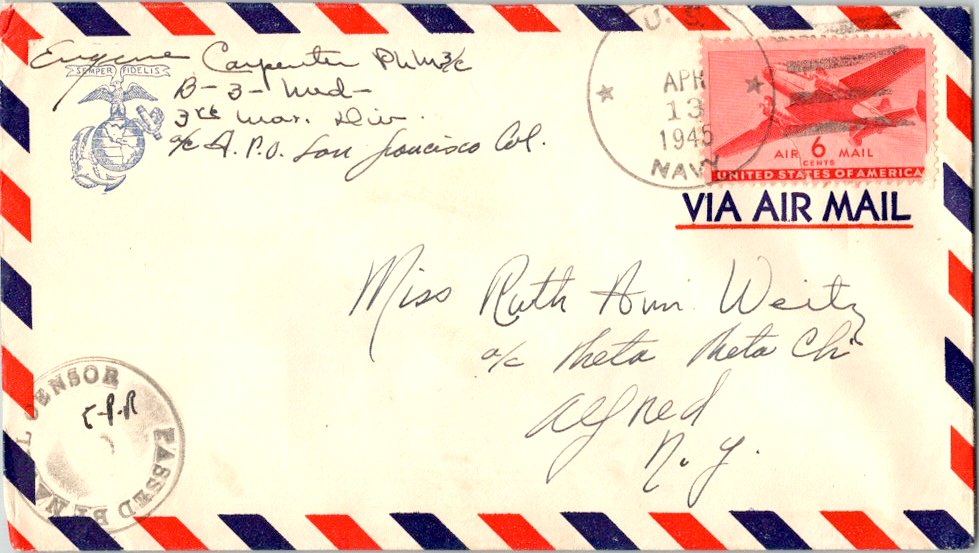 Eugene Carpenter PhM3/c
SEMPER FIDELIS
B-3-Med-
3rd Mar. Div.
c/o A.P.O. San Francisco Cal.
U.S.
APR
13
1945
NAVY
AIR 6 MAIL
CENTS
UNITED STATES OF AMERICA
VIA AIR MAIL
Miss Ruth Ann Weitz
c/o Theta Theta Chi
Alfred
N.Y.
PASSED BY NAVAL CENSOR